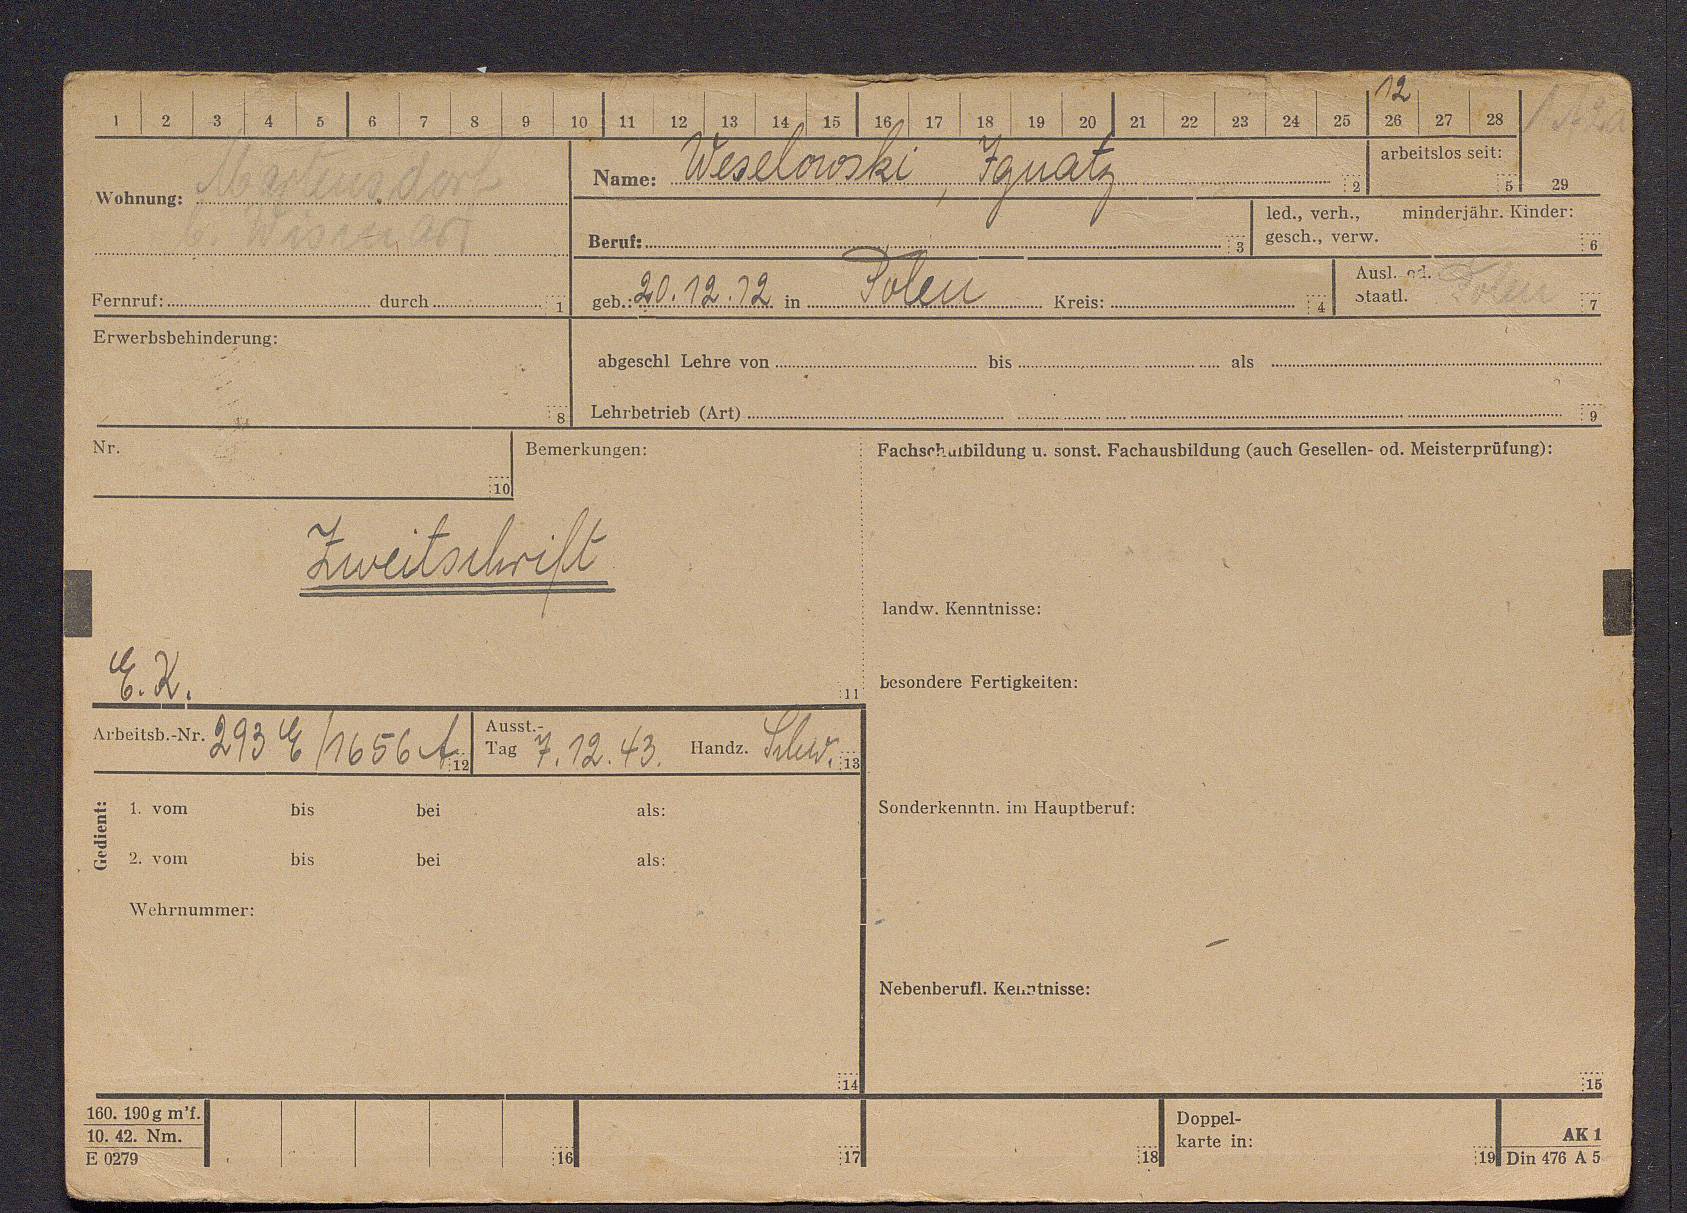 12
1 2 3 4 5 6 7 8 9 10 11 12 13 14 15 16 17 18 19 20 21 22 23 24 25 26 27 28
Wohnung: Martensdorf
b. Wismar
Name: Weselowski, Ignatz 2
arbeitslos seit: 5
29
Beruf: 3
led., verh., minderjähr. Kinder:
gesch., verw. 6
Fernruf: durch 1
geb.: 20.12.12 in Polen Kreis: 4
Ausl. od. Polen
Staatl. 7
Erwerbsbehinderung: 8
abgeschl Lehre von bis als
Lehrbetrieb (Art) 9
Nr. 10
Bemerkungen:
Zweitschrift
E. K. 11
Fachschulbildung u. sonst. Fachausbildung (auch Gesellen- od. Meisterprüfung):
landw. Kenntnisse:
besondere Fertigkeiten:
Arbeitsb.-Nr. 293 E/1656 A 12
Ausst.-
Tag 7.12.43. Handz. Schw. 13
Gedient:
1. vom bis bei als:
2. vom bis bei als:
Wehrnummer:
14
Sonderkenntn. im Hauptberuf:
Nebenberufl. Kenntnisse:
15
160. 190g m'f.
10. 42. Nm.
E 0279
16 17 18
Doppel-
karte in: 19
AK 1
Din 476 A 5